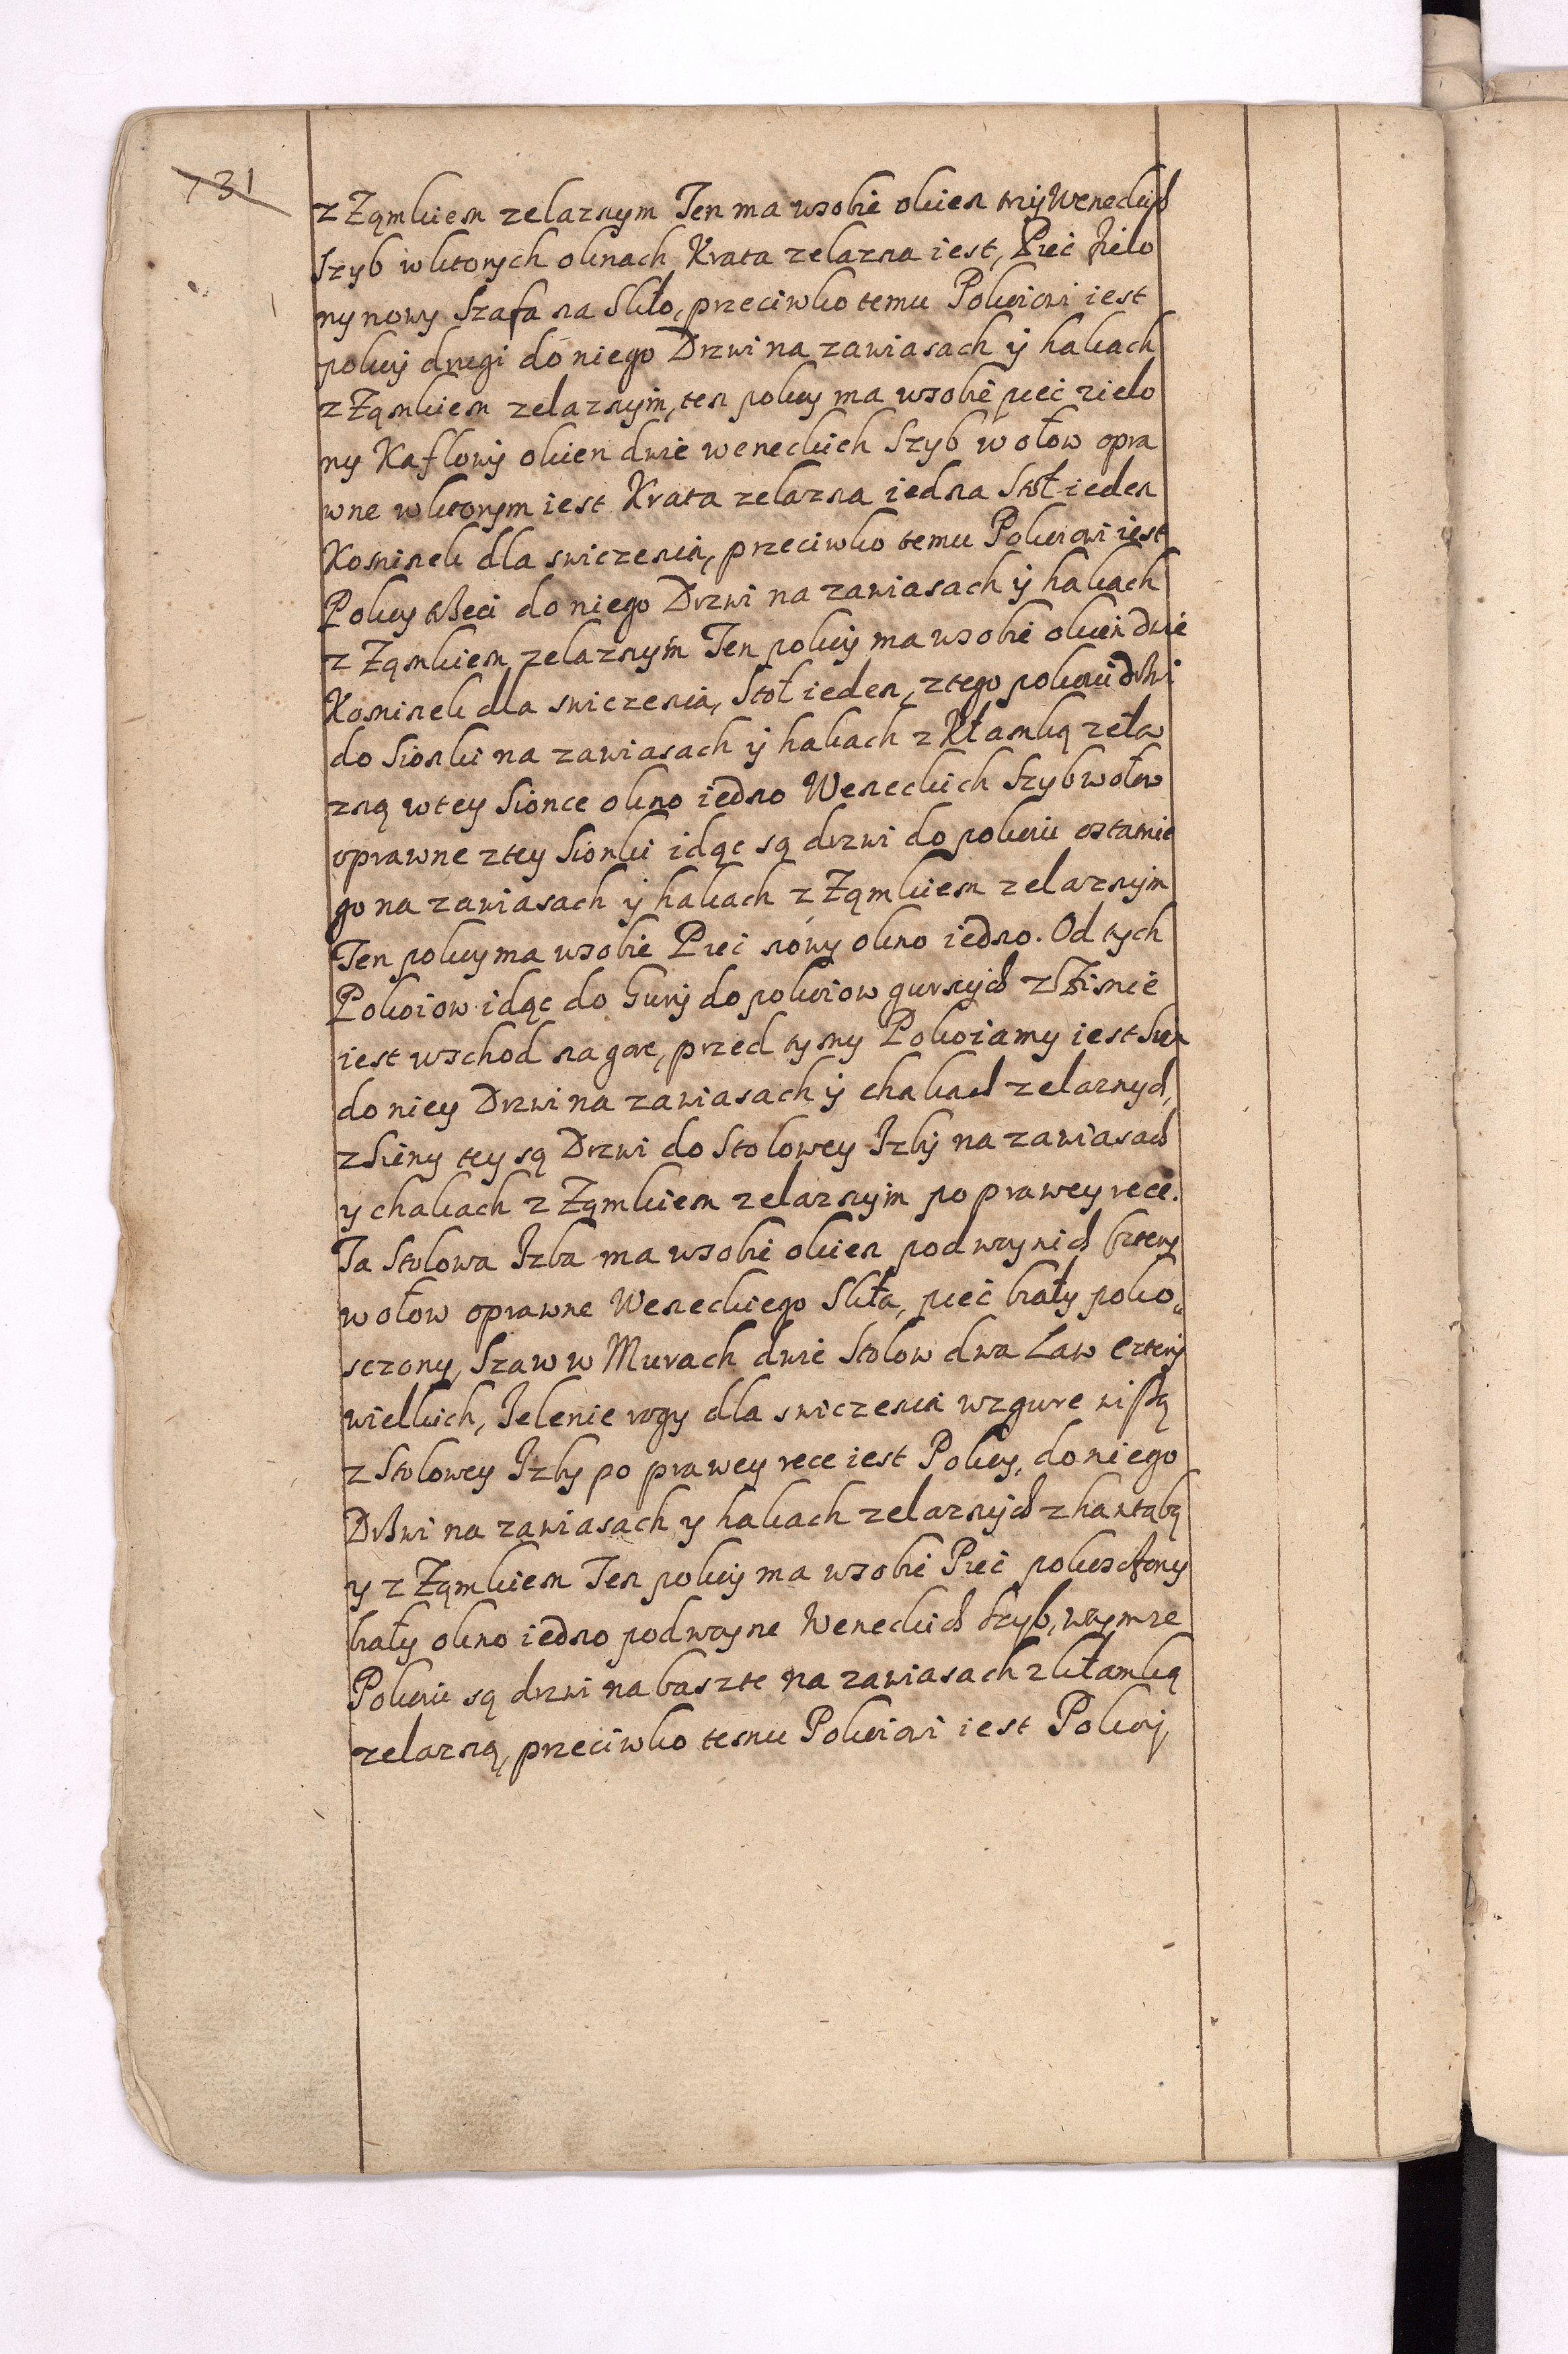 131
z Ząmkiem zelaznym Ten ma wsobie okien trzÿ Weneckich
Szyb wktorych oknach Krata zelazna iest, Piec Zielo
ny nowy Szafa na Skło, przeciwko temu Pokoiowi iest
pokoy drugi do niego Drzwi na zawiasach ÿ hakach
z Ząmkiem zelaznym, ten pokoy ma wsobie piec zielo
ny Kaflowÿ okien dwie weneckich Szyb w ołow opra
wne wktorym iest Krata zelazna iedna Stoł ieden
Kominek dla swiczenia, przeciwko temu Pokoiowi iest
Pokoy trzeci do niego Drzwi na zawiasach ÿ hakach
z Ząmkiem zelaznym Ten pokoÿ ma wsobie okien dwie
Kominek dla swiczenia, Stoł ieden, ztego pokoiu drzwi
do Sionki na zawiasach ÿ hakach z Kłamką zela
zną wtey Sionce okno iedno Weneckich Szyb wołow
oprawne ztey Sionki idąc są drzwi do pokoiu ostatnie
go na zawiasach ÿ hakach z Ząmkiem zelaznym
Ten pokoy ma wsobie Piec nowy okno iedno. Od tych
Pokoiow idąc do Gurÿ do pokoiow gurnych z Sieni
iest wschod na gore, przed tymy Pokoiamy iest Sien
do niey Drzwi na zawiasach ÿ chakach zelaznych,
z Sieny tey są Drzwi do Stolowey Izbÿ na zawiasach
y chakach z Ząmkiem zelaznym po prawey rece.
Ta Stolowa Izba ma wsobie okien podwoynich cztery
w ołow oprawne Weneckiego Skła, piec biały poko
sczony, Szaw w Murach dwie Stolow dwa Law czterÿ
wielkich, Ielenie rogy dla swiczenia wzgure wiszą
z Stolowey Izby po prawey rece iest Pokoy, do niego
Drzwi na zawiasach y hakach zelaznych z hantabą
y z Ząmkiem Ten pokoÿ ma wsobie Piec pokosczony
biały okno iedno podwoyne Weneckich Szyb, wtymze
Pokoiu są drzwi na baszte na zawiasach z kłamką
zelazną, przeciwko temu Pokoiowi iest Pokoÿ,